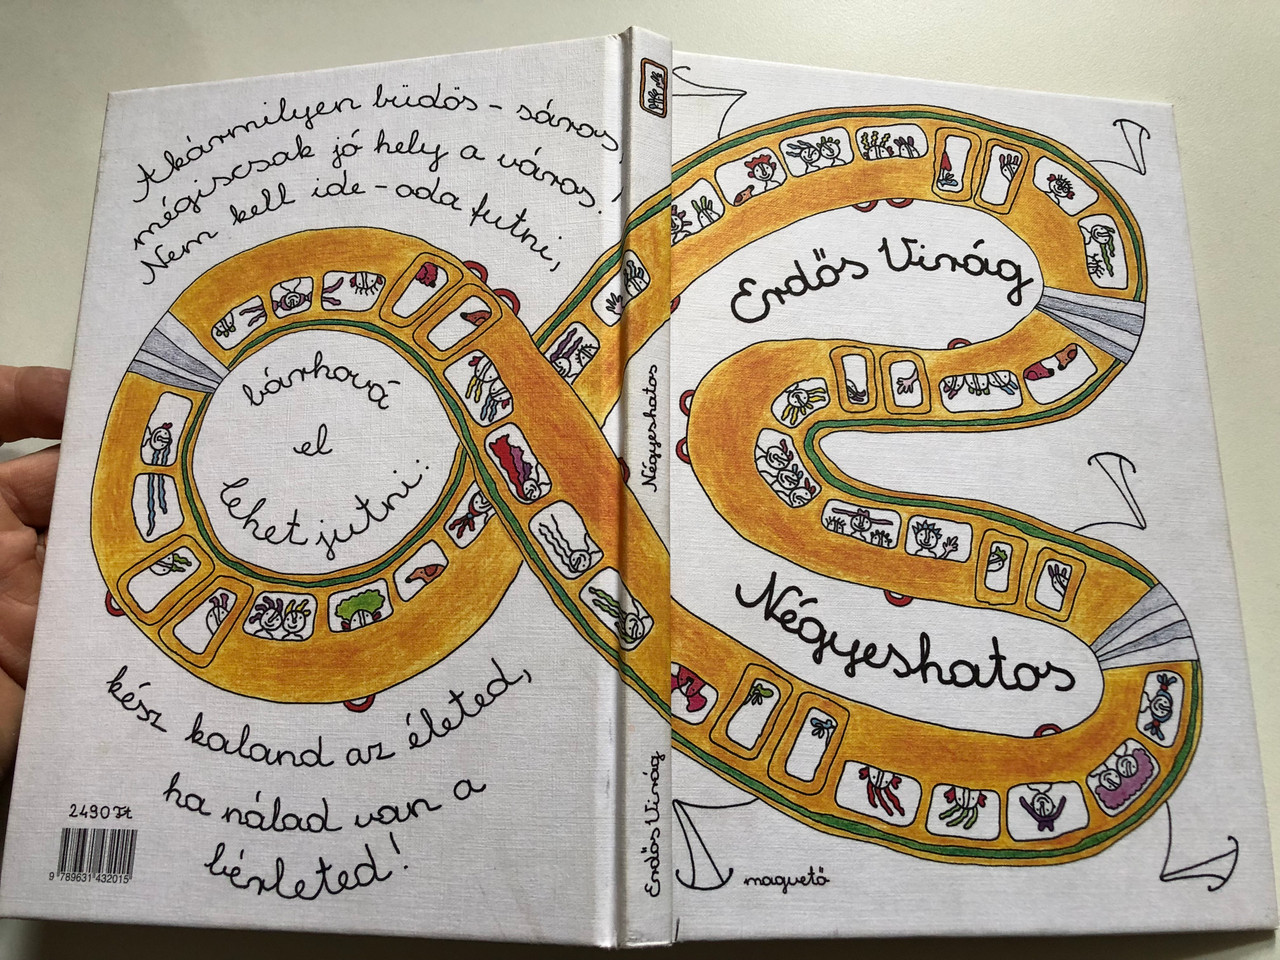 Akármilyen büdös - sáros,
mégiscsak jó hely a város!
Nem kell ide - oda futni,
bárhová
el
lehet jutni:
kész kaland az életed,
ha nálad van a
bérleted!
2490 Ft
9 789631 432015
Négyeshatos
Erdős Virág
Erdős Virág
Négyeshatos
magvető